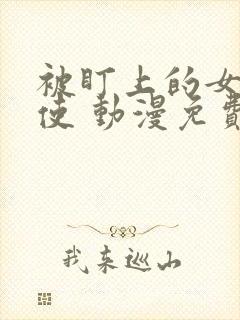 被盯上的女
使 動漫免費
我来巡山